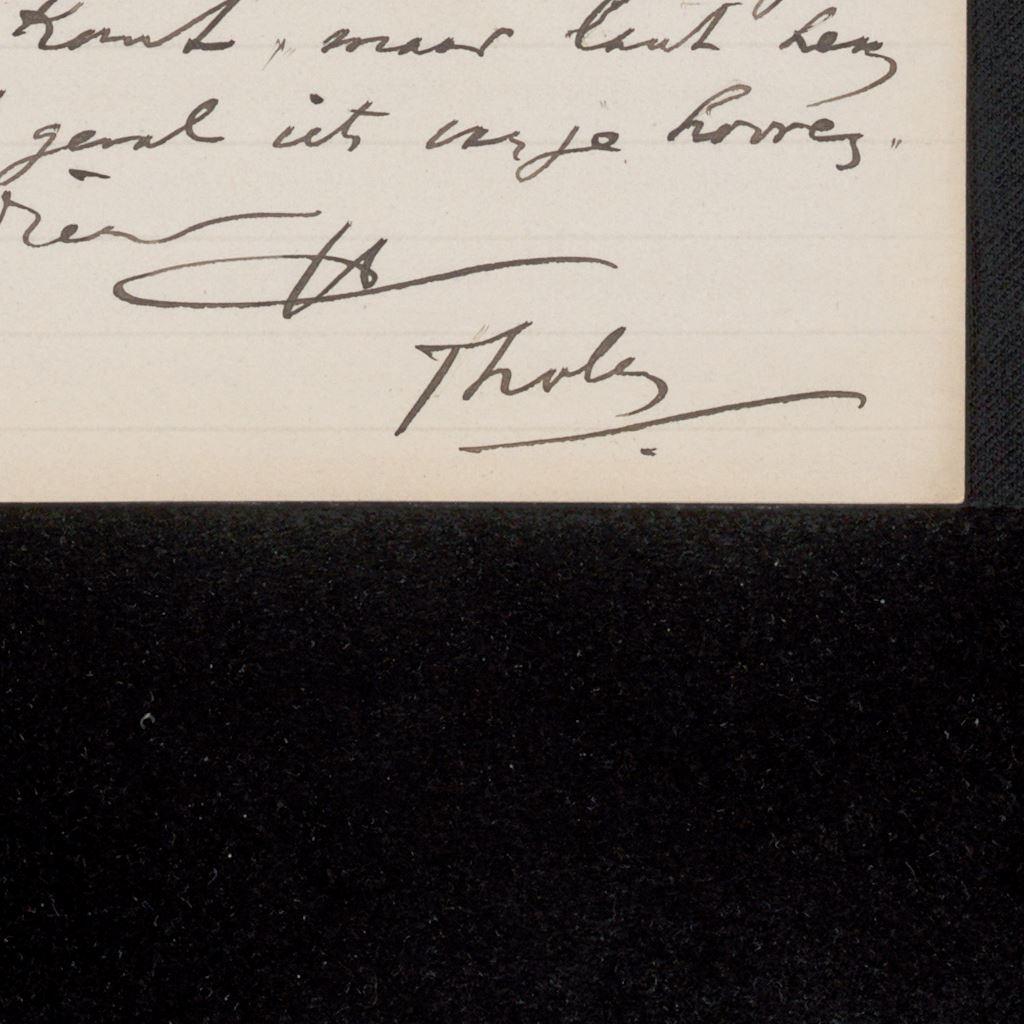 kant, maar laat hem
geval iets van je hooren.
Tholen